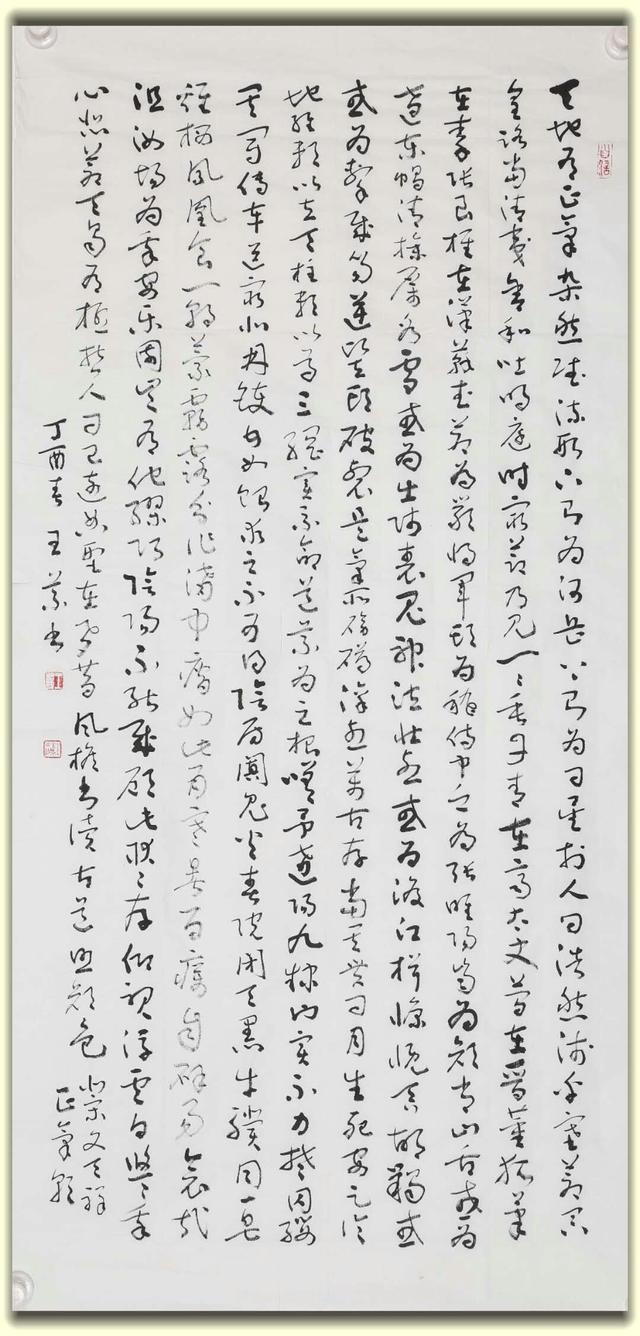 天地有正氣杂然赋流形下则为河岳上则为日星於人曰浩然沛乎塞苍冥
皇路当清夷含和吐明庭时穷节乃见一一垂丹青在齐太史简在晋董狐笔
在秦张良椎在汉苏武节为严将军头为嵇侍中血为张睢阳齿为颜常山舌或为
辽东帽清操厉冰雪或为出师表鬼神泣壮烈或为渡江楫慷慨吞胡羯或
或为击贼笏逆竖头破裂是氣所磅礴凛烈万古存当其贯日月生死安足论
地维赖以立天柱赖以尊三纲实系命道义为之根嗟予遘阳九隶也实不力楚囚缨
其冠传车送穷北鼎镬甘如饴求之不可得阴房阗鬼火春院闭天黑牛骥同一皂
鸡栖凤凰食一朝蒙雾露分作沟中瘠如此再寒暑百疠自辟易哀哉
沮洳场为我安乐国岂有他缪巧阴阳不能贼顾此耿耿存仰视浮云白悠悠我
心悲苍天曷有极哲人日已远典型在夙昔风檐书读古道照颜色
宋文天祥
正氣歌
丁酉春 王书